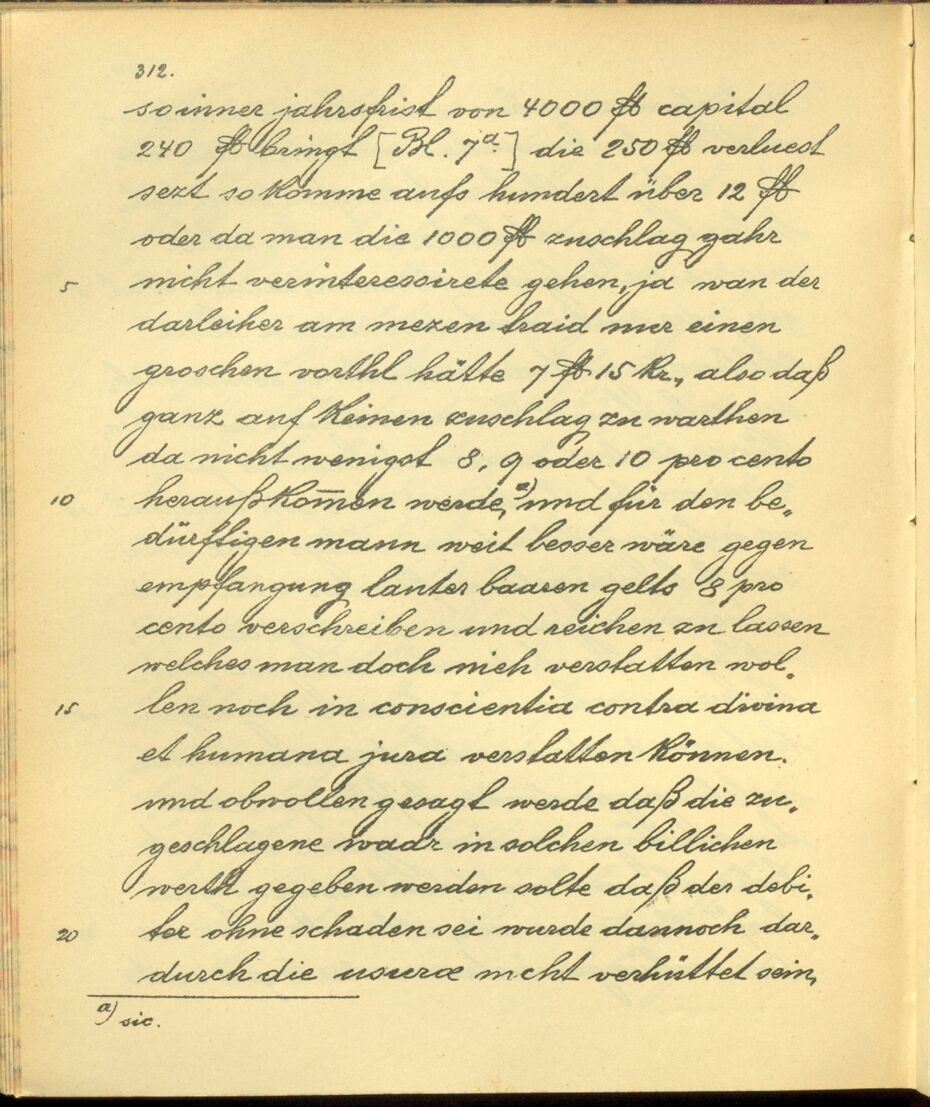 312.
so inner jahrsfrist von 4000 ℔ capital
240 ℔ bringt [Bl. 7a.] die 250 ℔ verluest
sezt so komme aufs hundert über 12 ℔
oder da man die 1000 ℔ zuschlag gahr
5 nicht verinteressirete gehen, ja wan der
darleiher am mezen traid nur einen
groschen vorthl hätte 7 ℔ 15 Kr., also daß
ganz auf keinen zuschlag zu warthen
da nicht wenigst 8, 9 oder 10 pro cento
10 heraußkom̅en werde,a) und für den be„
dürfftigen mann weit besser wäre gegen
empfangung lauter baaren gelts 8 pro
cento verschreiben und reichen zu lassen
welches man doch nieh verstatten wol„
15 len noch in conscientia contra divina
et humana jura verstatten können.
und obwollen gesagt werde daß die zu„
geschlagene waar in solchen billichen
werth gegeben werden solte daß der debi„
20 tor ohne schaden sei wurde dannoch dar„
durch die usurae nicht verhüttet sein,
a) sic.